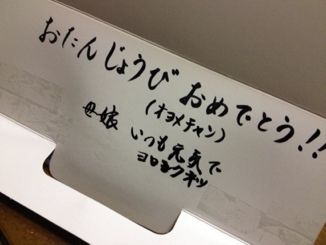 おたんじょうび おめでとう!!
(オヨメチャン)
母娘 いつも元気で
ヨロシクネッ